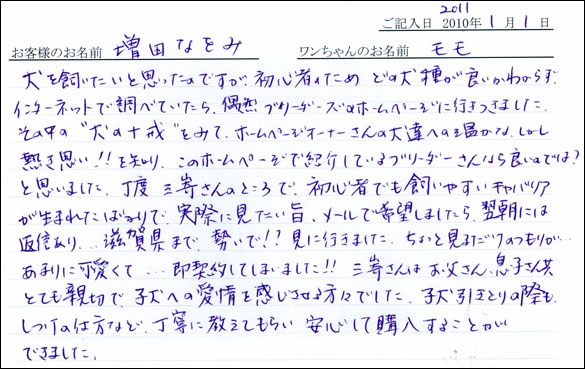 2011
ご記入日 2010年 1月 1日
お客様のお名前 増田なをみ ワンちゃんのお名前 モモ
犬を飼いたいと思ったのですが、初心者のため どの犬種が良いかわからず、
インターネットで調べていたら、偶然 ブリーダーズのホームページに行きつきました。
その中の "犬の十戒" をみて、ホームページオーナーさんの犬達への温かな、しかし
熱き思い!!を知り、このホームページで紹介しているブリーダーさんなら良いのでは?
と思いました。丁度 三嵜さんのところで、初心者でも飼いやすいキャバリア
が生まれたばかりで、実際に見たい旨、メールで希望しましたら、翌朝には
返信あり... 滋賀県まで、勢いで!? 見に行きました。ちょっと見るだけのつもりが...
あまりに可愛くて... 即契約してしまいました!! 三嵜さんは お父さん、息子さん共
とても親切で、子犬への愛情を感じさせる方々でした。子犬引きとりの際も、
しつけの仕方など、丁寧に教えてもらい 安心して購入することが
できました。